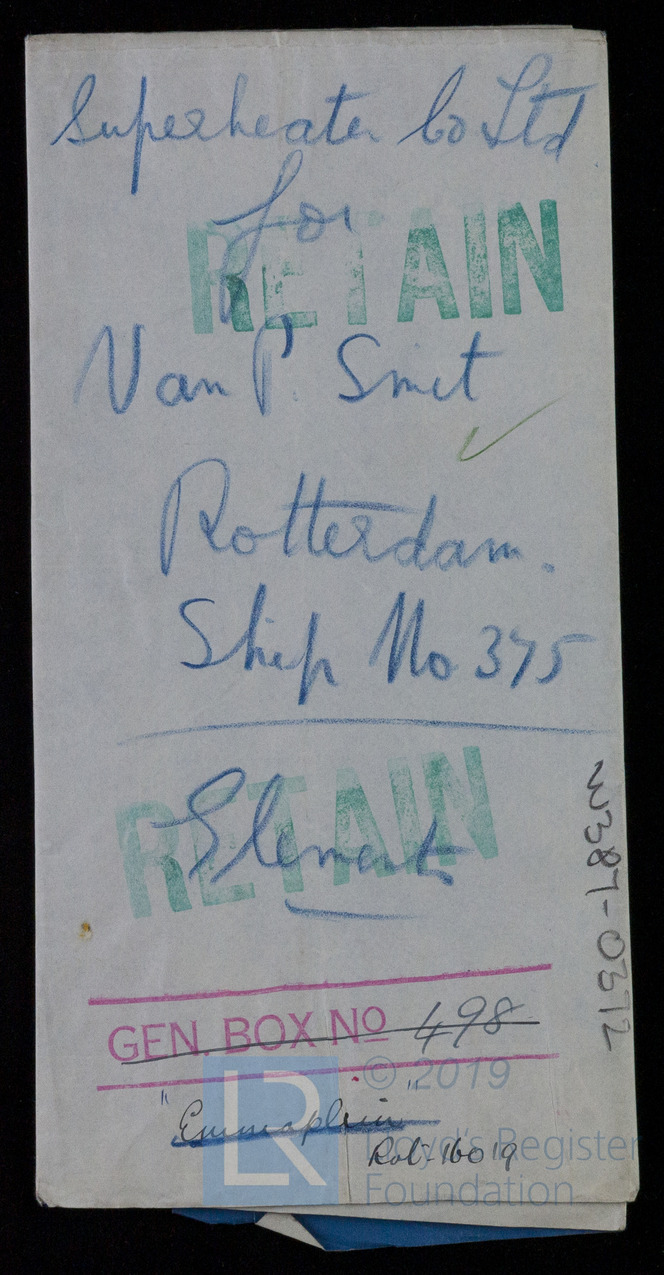 Superheater Co Ltd
for
RETAIN
Van P. Smit
Rotterdam.
Ship No 375
RETAIN
Elements
W387-0372
GEN. BOX No 498
© 2019
"Emmaplein"
Lloyd's Register
Rot. 16019
Foundation
LR